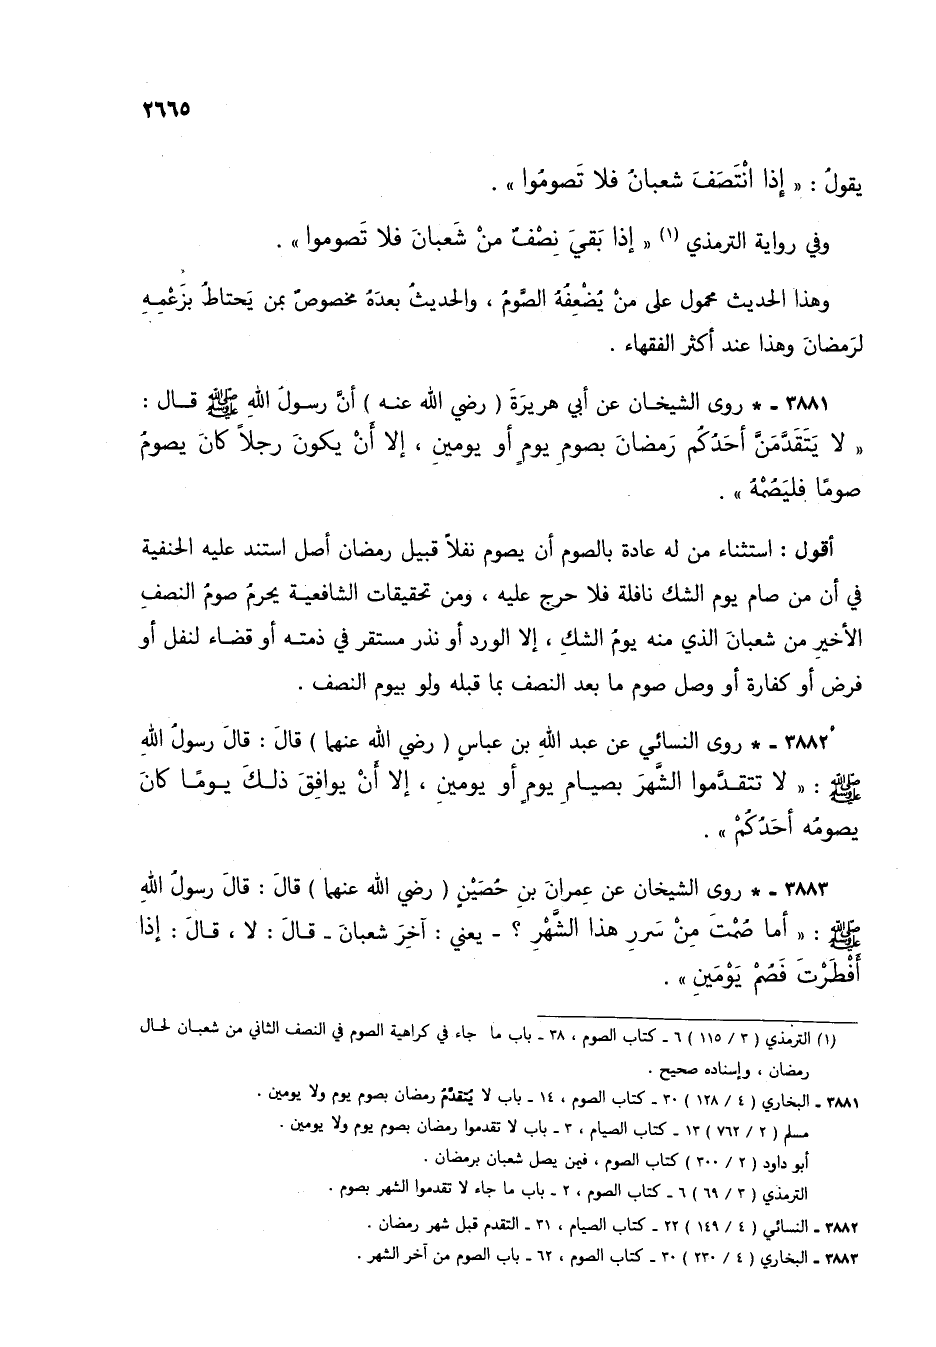 ٢٦٦٥
يقولُ : « إِذا انْتَصَفَ شعبانُ فلا تَصومُوا » .
وفي رواية الترمذي (١) « إِذا بَقيَ نِصْفٌ منْ شَعبانَ فلا تَصوموا » .
وهذا الحديث محمول على منْ يُضْعِفُهُ الصَّومُ ، والحديثُ بعدَهُ مخصوصٌ بمن يَحتاطُ بزَعْمِهِ
لرَمضانَ وهذا عند أكثر الفقهاء .
٣٨٨١ - * روى الشيخان عن أبي هريرَةَ ( رضي الله عنه ) أنَّ رسولُ اللهِ ﷺ قال :
« لا يَتَقَدَّمَنَّ أحَدُكُم رَمضانَ بصومِ يومٍ أو يومينِ ، إلا أَنْ يكونَ رجلاً كانَ يصومُ
صومًا فليَصُمْهُ » .
أقول : استثناء من له عادة بالصوم أن يصوم نفلاً قبيل رمضان أصل استند عليه الحنفية
في أن من صام يوم الشك نافلة فلا حرج عليه ، ومن تحقيقات الشافعية يحرمُ صومُ النصفِ
الأخيرِ من شعبانَ الذي منه يومُ الشكِ ، إلا الورد أو نذر مستقر في ذمته أو قضاء لنفل أو
فرض أو كفارة أو وصل صوم ما بعد النصف بما قبله ولو بيوم النصف .
٣٨٨٢ - * روى النسائي عن عبد اللهِ بن عباسٍ ( رضي الله عنهما ) قالَ : قالَ رسولُ اللهِ
ﷺ : « لا تتقدَّموا الشَّهرَ بصيامِ يومٍ أو يومينِ ، إلا أَنْ يوافِقَ ذلكَ يومًا كانَ
يصومُه أحَدُكُمْ » .
٣٨٨٣ - * روى الشيخان عن عِمرانَ بنِ حُصَيْنٍ ( رضي الله عنهما ) قالَ : قالَ رسولُ اللهِ
ﷺ : « أما صُمْتَ مِنْ سَررِ هذا الشَّهْرِ ؟ - يعني : آخِرَ شعبانَ - قالَ : لا ، قالَ : إذا
أَفْطَرْتَ فَصُمْ يَوْمَينِ » .
(١) الترمذي ( ٣ / ١١٥ ) ٦ - كتاب الصوم ، ٣٨ - باب ما جاء في كراهية الصوم في النصف الثاني من شعبان لحال
رمضان ، وإسناده صحيح .
٣٨٨١ - البخاري ( ٤ / ١٢٨ ) ٣٠ - كتاب الصوم ، ١٤ - باب لا يُتقدَّمُ رمضان بصوم يوم ولا يومين .
مسلم ( ٢ / ٧٦٢ ) ١٣ - كتاب الصيام ، ٣ - باب لا تقدموا رمضان بصوم يوم ولا يومين .
أبو داود ( ٢ / ٣٠٠ ) كتاب الصوم ، فمن يصل شعبان برمضان .
الترمذي ( ٣ / ٦٩ ) ٦ - كتاب الصوم ، ٢ - باب ما جاء لا تقدموا الشهر بصوم .
٣٨٨٢ - النسائي ( ٤ / ١٤٩ ) ٢٢ - كتاب الصيام ، ٣١ - التقدم قبل شهر رمضان .
٣٨٨٣ - البخاري ( ٤ / ٢٣٠ ) ٣٠ - كتاب الصوم ، ٦٢ - باب الصوم من آخر الشهر .